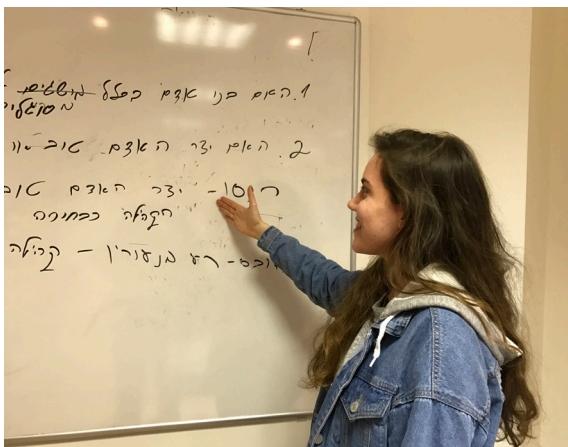 1. האם בני אדם בכלל מושגים
מסוגלים
2. האם יצר האדם טוב
רוסו - יצר האדם טוב
הקהילה כבחירה
הובס - רע מנעוריו - קהילה